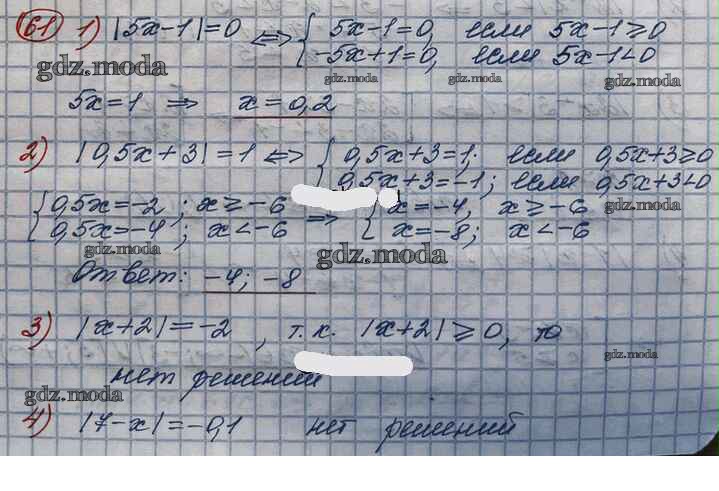 61 1) |5x-1|=0 <=> { 5x-1=0, если 5x-1≥0
-5x+1=0, если 5x-1<0
gdz.moda
gdz.moda gdz.moda gdz.moda
5x=1 ⇒ x=0,2
2) |0,5x+3|=1 <=> { 0,5x+3=1; если 0,5x+3≥0
0,5x+3=-1; если 0,5x+3<0
{ 0,5x=-2 ; x≥-6 ⇒ { x=-4, x≥-6 gdz.moda
0,5x=-4 ; x<-6 x=-8; x<-6
gdz.moda gdz.moda
Ответ: -4; -8
3) |x+2|=-2 , т.к. |x+2|≥0, то
gdz.moda
нет решений
gdz.moda
4) |7-x|=-0,1 нет решений
gdz.moda